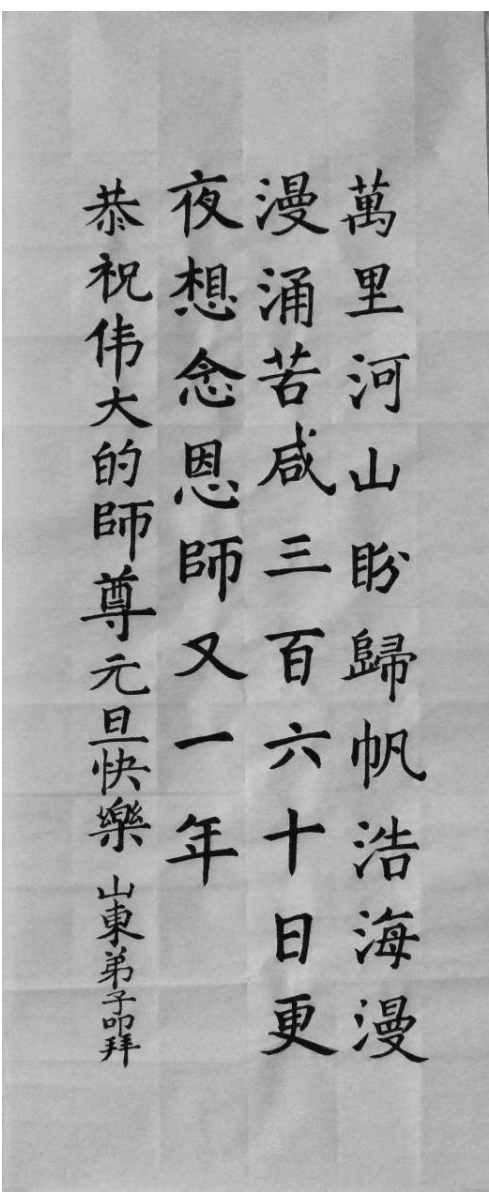 萬里河山盼歸帆浩海漫
漫涌苦咸三百六十日更
夜想念恩師又一年
恭祝伟大的師尊元旦快樂 山東弟子叩拜